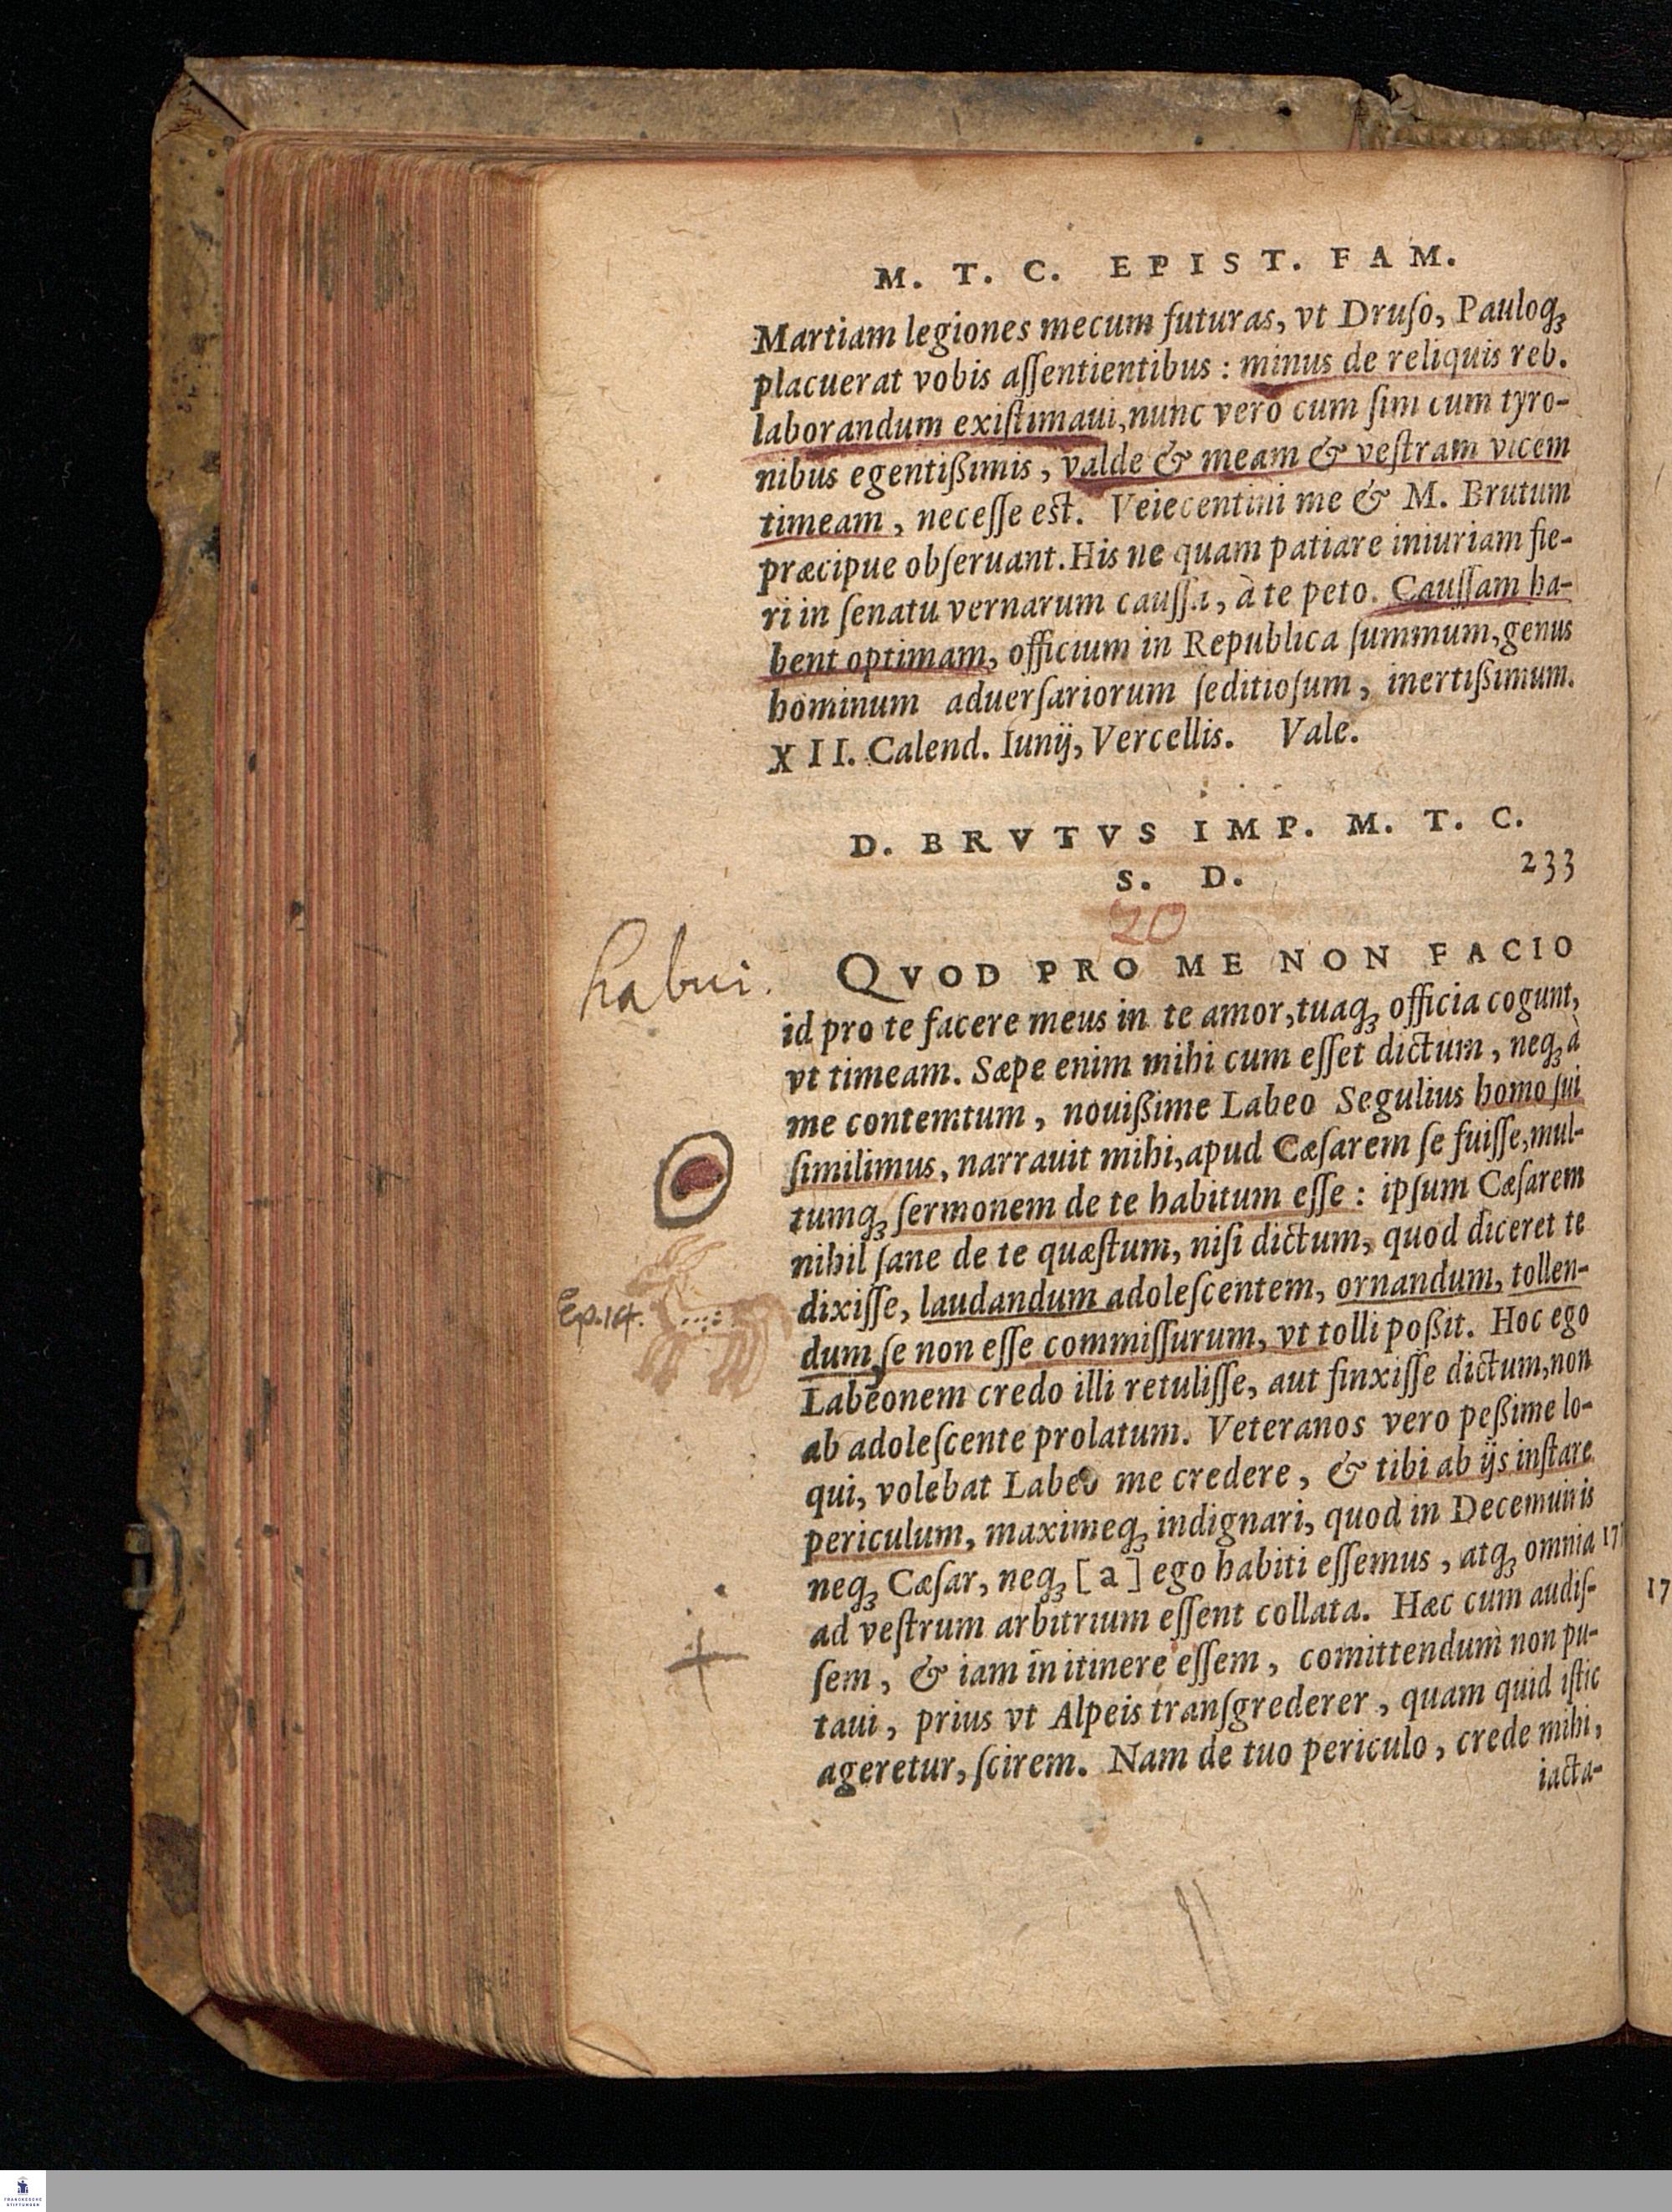 M. T. C. EPIST. FAM.
Martiam legiones mecum futuras, vt Druſo, Pauloq;
placuerat vobis aſſentientibus : minus de reliquis reb.
laborandum exiſtimaui, nunc vero cum ſim cum tyro-
nibus egentißimis, valde & meam & veſtram vicem
timeam, neceſſe est. Veiecentini me & M. Brutum
præcipue obſeruant. His ne quam patiare iniuriam fie-
ri in ſenatu vernarum cauſſa, à te peto. Cauſſam ha-
bent optimam, officium in Republica ſummum, genus
hominum aduerſariorum ſeditioſum, inertißimum.
XII. Calend. Iunij, Vercellis. Vale.
D. BRVTVS IMP. M. T. C.
S. D. 233
20
habui.
QVOD PRO ME NON FACIO
id pro te facere meus in te amor, tuaq; officia cogunt,
vt timeam. Sæpe enim mihi cum eſſet dictum, neq; à
me contemtum, nouißime Labeo Segulius homo ſui
ſimilimus, narrauit mihi, apud Cæſarem ſe fuiſſe, mul-
tumq; ſermonem de te habitum eſſe : ipſum Cæſarem
nihil ſane de te quæſtum, niſi dictum, quod diceret te
Ep. 14.
dixiſſe, laudandum adoleſcentem, ornandum, tollen-
dum, ſe non eſſe commiſſurum, vt tolli poßit. Hoc ego
Labeonem credo illi retuliſſe, aut finxiſſe dictum, non
ab adoleſcente prolatum. Veteranos vero peßime lo-
qui, volebat Labeo me credere, & tibi ab ijs inſtare
periculum, maximeq; indignari, quod in Decemuiris
neq; Cæſar, neq; [a] ego habiti eſſemus, atq; omnia
ad veſtrum arbitrium eſſent collata. Hæc cum audiſ-
ſem, & iam in itinere eſſem, comittendum non pu-
taui, prius vt Alpeis tranſgrederer, quam quid iſtic
ageretur, ſcirem. Nam de tuo periculo, crede mihi,
iacta-
17
FRANCKESCHE
STIFTUNGEN